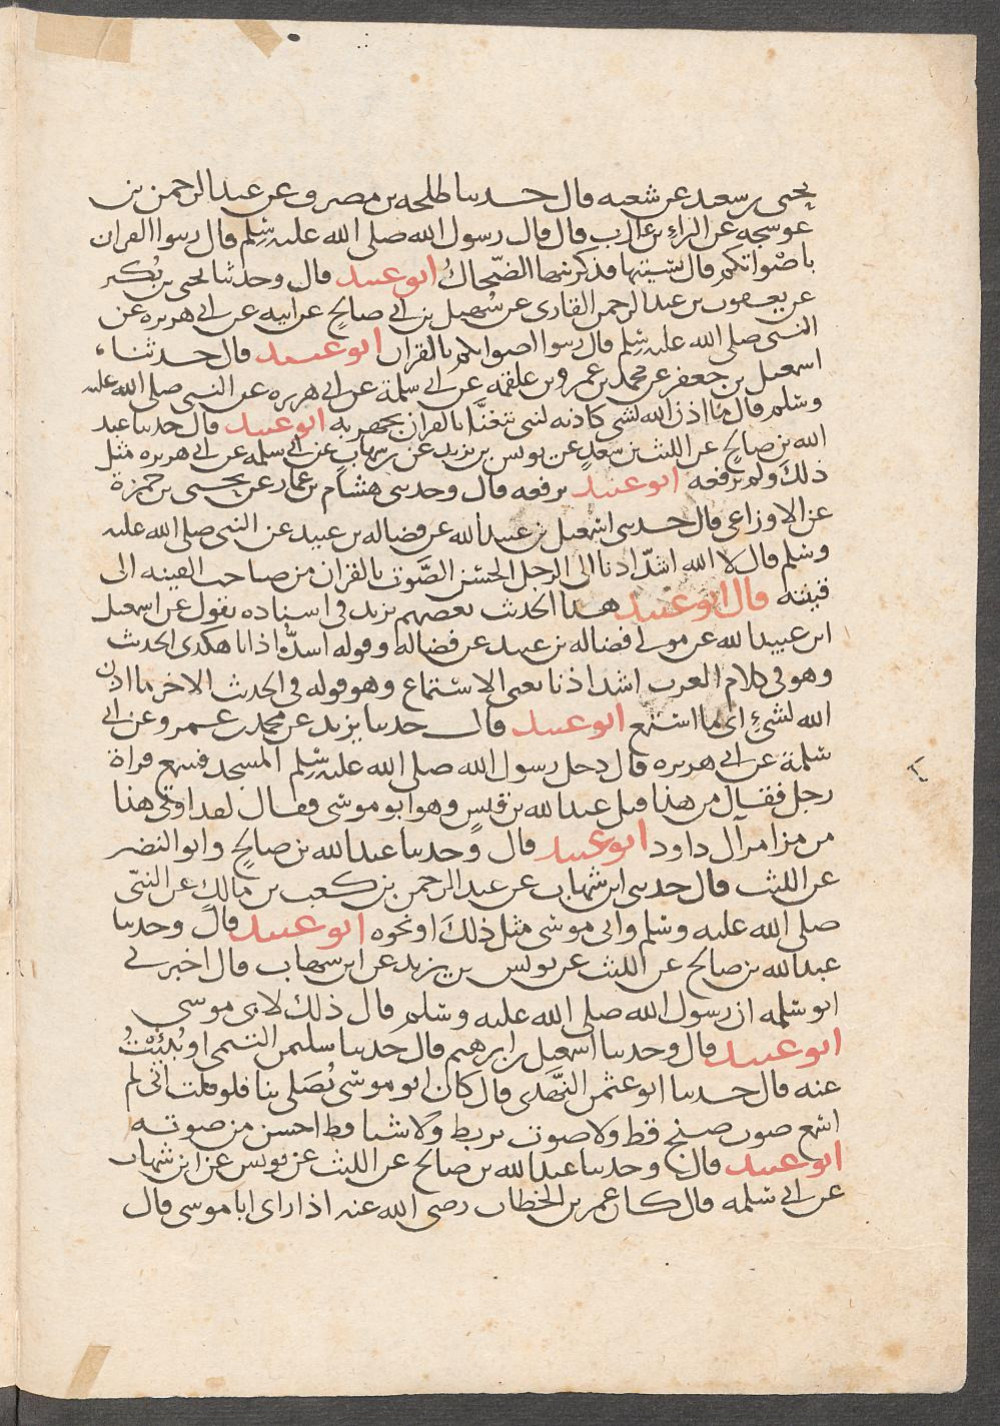 يحيى بن سعيد عن شعبه قال حدثنا طلحه بن مصرف عن عبد الرحمن بن
عوسجه عن البراء بن عازب قال قال رسول الله صلى الله عليه وسلم قال زينوا القران
باصواتكم قال نسيتها فذكرنيها الضحاك ابو عبيد قال وحدثنا يحيى بن بكير
عن يعقوب بن عبد الرحمن القارى عن سهيل بن ابي صالح عن ابيه عن ابي هريره عن
النبى صلى الله عليه وسلم قال زينوا اصواتكم بالقران ابو عبيد قال حدثنا
اسمعيل بن جعفر عن محمد بن عمرو بن علقمه عن ابي سلمة عن ابي هريره عن النبى صلى الله عليه
وسلم قال ما اذن الله لشى كاذنه لنبى يتغنا بالقران يجهر به ابو عبيد قال حدثنا عبد
الله بن صالح عن الليث بن سعد عن يونس بن يزيد عن بن شهاب عن ابي سلمه عن ابي هريره مثل
ذلك ولم يرفعه ابو عبيد يرفعه قال وحدثنى هشام بن عمار عن يحيى بن حمزة
عن الاوزاعى قال حدثنى اسمعيل بن عبيد الله عن فضاله بن عبيد عن النبى صلى الله عليه
وسلم قال لا الله اشد اذنا الى الرجل الحسن الصوت بالقران من صاحب القينه الى
قينته قال ابو عبيد هذا الحديث بعضهم يزيد فى اسناده يقول عن اسمعيل
ابن عبيد الله عن مولى فضاله بن عبيد عن فضاله وقوله اشد اذانا هكذى الحديث
وهو فى كلام العرب اشد اذنا يعنى الاستماع وهو قوله فى الحديث الاخر ما اذن
الله لشئ اى ما استمع ابو عبيد قال حدثنا يزيد عن محمد بن عمرو عن ابي
سلمة عن ابي هريره قال دخل رسول الله صلى الله عليه وسلم المسجد فسمع قراة
رجل فقال من هذا قيل عبد الله بن قيس وهو ابو موسى فقال لقد اوتى هذا
من مزامر آل داود ابو عبيد قال وحدثنا عبد الله بن صالح وابو النضر
عن الليث قال حدثنى ابن شهاب عن عبد الرحمن بن كعب بن مالك عن النبى
صلى الله عليه وسلم وابى موسى مثل ذلك او نحوه ابو عبيد قال وحدثنا
عبد الله بن صالح عن الليث عن يونس بن يزيد عن ابن شهاب قال اخبرني
ابو سلمه ان رسول الله صلى الله عليه وسلم قال ذلك لابى موسى
ابو عبيد قال وحدثنا اسمعيل بن ابرهيم قال حدثنا سليمن التيمى او نبئت
عنه قال حدثنا ابو عثمن النهدى قال كان ابو موسى يصلى بنا فلو قلت انى لم
اسمع صوت صنج قط ولا صوت بربط ولا شيا قط احسن من صوته
ابو عبيد قال وحدثنا عبد الله بن صالح عن الليث عن يونس عن ابن شهاب
عن ابي سلمه قال كان عمر بن الخطاب رضى الله عنه اذا راى ابا موسى قال